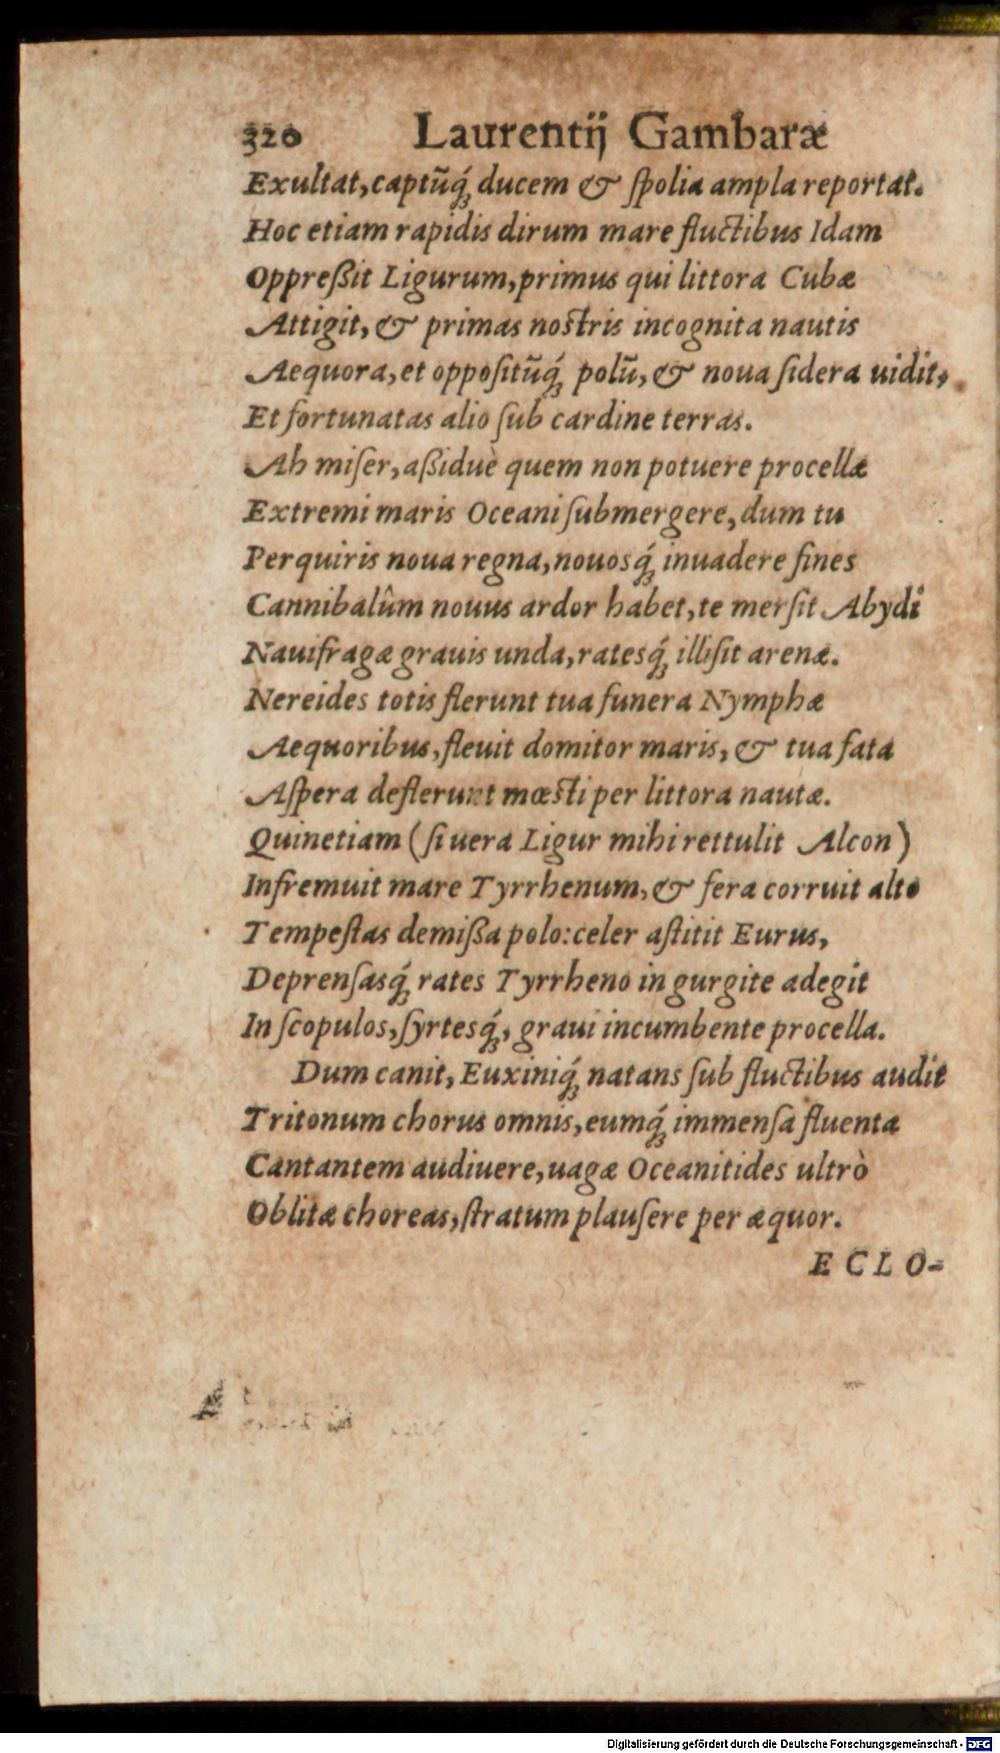 320 Laurentij Gambaræ
Exultat, captũq́; ducem & ſpolia ampla reportat.
Hoc etiam rapidis dirum mare fluctibus Idam
Oppreßit Ligurum, primus qui littora Cubæ
Attigit, & primas nostris incognita nautis
Aequora, et oppoſitũq́; polũ, & noua ſidera uidit,
Et fortunatas alio ſub cardine terras.
Ah miſer, aßiduè quem non potuere procellæ
Extremi maris Oceani ſubmergere, dum tu
Perquiris noua regna, nouosq́; inuadere fines
Cannibalûm nouus ardor habet, te merſit Abydi
Nauifragæ grauis unda, ratesq́; illiſit arenæ.
Nereides totis flerunt tua funera Nymphæ
Aequoribus, fleuit domitor maris, & tua fata
Aſpera deflerunt mœsti per littora nautæ.
Quinetiam (ſi uera Ligur mihi rettulit Alcon)
Infremuit mare Tyrrhenum, & fera corruit alto
Tempeſtas demißa polo: celer aſtitit Eurus,
Deprenſasq́; rates Tyrrheno in gurgite adegit
In ſcopulos, ſyrtesq́;, graui incumbente procella.
Dum canit, Euxiniq́; natans ſub fluctibus audit
Tritonum chorus omnis, eumq́; immenſa fluenta
Cantantem audiuere, uagæ Oceanitides ultrò
Oblitæ choreas, ſtratum plauſere per æquor.
ECLO-
Digitalisierung gefördert durch die Deutsche Forschungsgemeinschaft - DFG